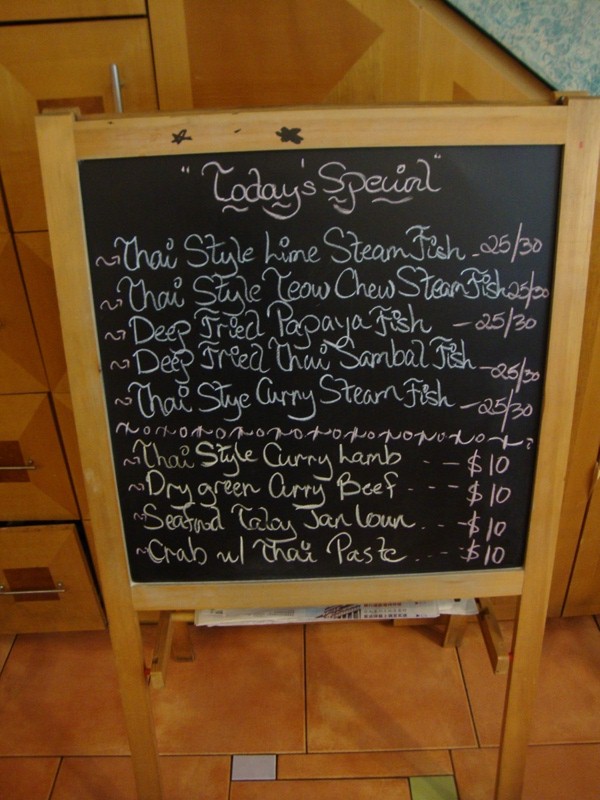 "Today's Special"
Thai Style Lime Steam Fish - 25/30
Thai Style Teow Chew Steam Fish 25/30
Deep Fried Papaya Fish - 25/30
Deep Fried Thai Sambal Fish - 25/30
Thai Stye Curry Steam Fish - 25/30
Thai Style Curry Lamb - - - $10
Dry green Curry Beef - - - $10
Seafood Talay Jan - - - $10
Crab w/ Thai Paste - - - - $10